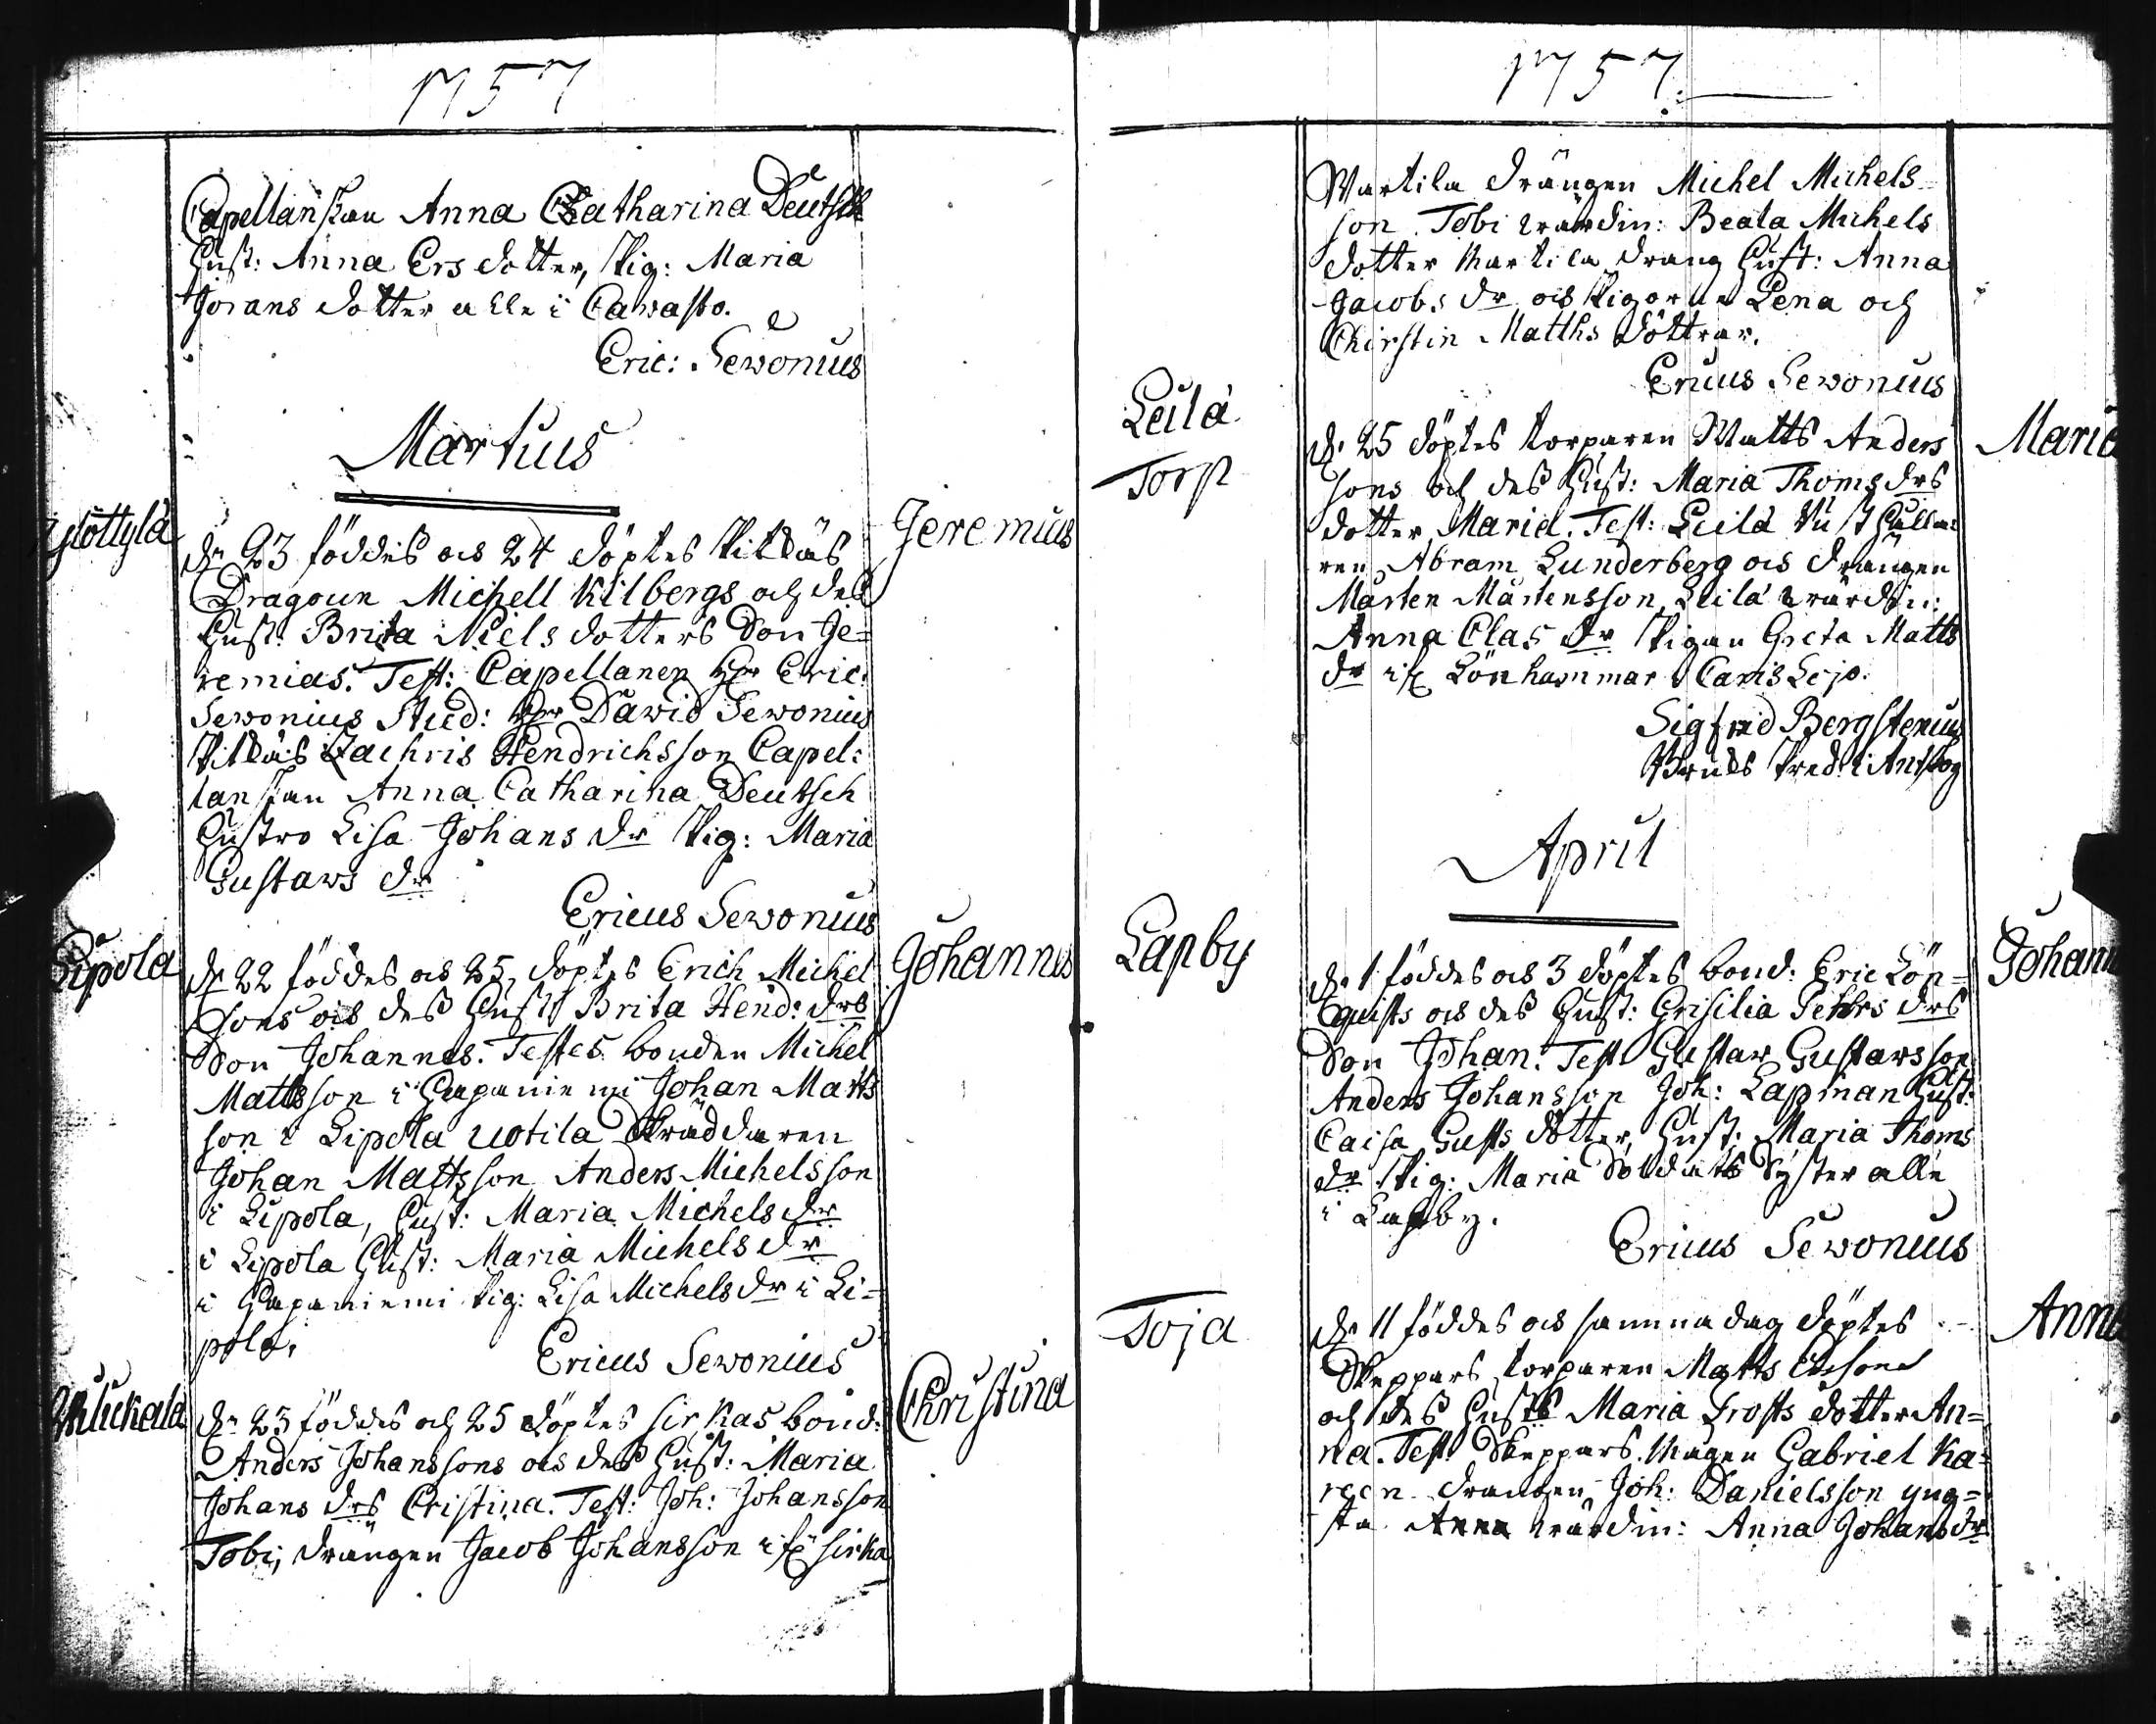 1757
Capellanskan Anna Catharina Deutsch
Hust: Anna Ers dotter, Pig: Maria
Jörans dotter alle i Cawasto.
Eric: Sewonius
Martius
Jeremias
dn 23 föddes och 24 döptes
Dragoun Michell Kilbergs och des
Hust: Brita Niels dotters Son Je=
remias. Test: Capellanen Hr Eric:
Sewonius Stud: Hr Dawid Sewonius
Zachris Hendrichsson Capel:
lanskan Anna Catharina Deutsch
Hustro Lisa Johans dr Pig: Maria
Gustaws dr
Ericus Sewonius
Lipola
Johannes
dn 22 föddes och 25 döptes Erich Michel
sons och des Hust Brita Hend: drs
Son Johannes. Testes bonden Michel
Mattsson i Johan Matts
son i Lipola Uotila Skräddaren
Johan Mattsson Anders Michelsson
i Lipola, Hust: Maria Michels dr
i Lipola Hust: Maria Michels dr
i Pig: Lisa Michels dr i Li=
pola.
Ericus Sewonius
Christina
dn 23 föddes och 25 döptes sirkas bond:
Anders Johanssons och des Hust: Maria
Johans drs Cristina. Test: Joh: Johansson
Tobi, drängen Jacob Johansson ifr sirka
1757
Martila drängen Michel Michels
son Tobi wärdin: Beata Michels
dotter Martila dräng Hust: Anna
Jacobs dr och Pigorne Lena och
Chirstin Matths döttrar.
Ericus Sewonius
Leilä
Torp
Maria
dn 25 döptes torparen Matts Anders
sons och des Hust: Maria Thoms drs
dotter Maria. Test: Leilä
ren Abram Lunderberg och drängen
Mårten Mårtensson, Leilä wärdin:
Anna Clas dr Pigan Greta Matts
dr ifr Lönhammar i Caris Lojo.
Sigfred Bergstenius
Bruks Pred: i Antskog
April
Lapby
Johan
dn 1 föddes och 3 döptes bond: Eric Lön=
quists och des Hust: Grisilia Pehrs drs
Son Johan. Test Gustaw Gustawsson
Anders Johansson Joh: Lapman Hust:
Caisa Gusts dotter, Hust: Maria Thoms
dr Pig: Maria Soldats Syster alle
i Lapby.
Ericus Sewonius
Toja
Anna
dn 11 föddes och samma dag döptes
Skeppars torparen Matts
och des Husts Maria Frosts dotter An=
na. Test Skeppars Mågen Gabriel Ka=
reen drängen Joh: Danielsson yng=
sta wärdin: Anna Johans dr